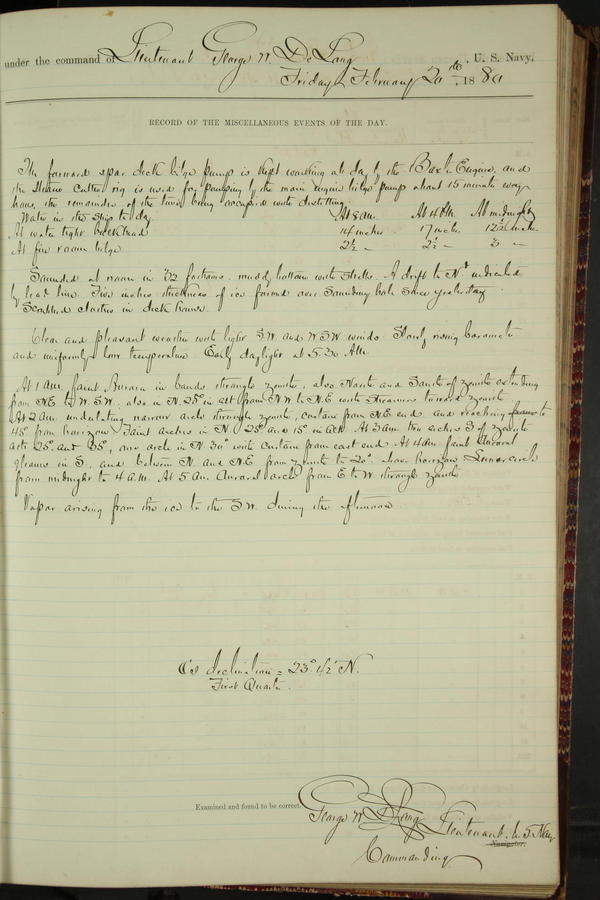 under the command of Lieutenant George W. De Long, U. S. Navy.
Friday February 20th, 1880
RECORD OF THE MISCELLANEOUS EVENTS OF THE DAY.
The forward spar deck bilge pump is kept working all day by the Baxter Engine, and
the steam cutter rig is used for pumping by the main engine bilge pump about 15 minutes every
hour, the remainder of the time being occupied with distilling.
Water in the ship to day At 8 a.m. At 4 P.M. At midnight
At water tight bulkhead 14 inches 17 inch. 12½ inch.
At fire room bilge 2½ " 2½ " 3 "
Sounded at noon in 32 fathoms. muddy bottom with shells. A drift to Nd indicated
by lead line. Five inches thickness of ice formed over Sounding hole since yesterday
Scrubbed clothes in deck house.
Clear and pleasant weather with light S.W. and W.S.W. winds. Slowly rising barometer
and uniformly low temperature Early daylight at 5.30 A.M.
At 1 a.m. faint Aurora in bands through zenith, also North and South of zenith extending
from NE to W.S.W. also in N. 25° in alt from N.W. to N.E. with streamers toward zenith
At 2 a.m. undulating narrow arch through zenith, curtain from NE end and reaching to
45° from horizon Faint arches in N 25° and 15° in alt. At 3 a.m. two arches S of zenith
alt 25° and 35°, one arch in N. 30° with curtain from east end At 4 a.m. faint Auroral
gleams in S., and between N. and N.E. from zenith to 20° above horizon Lunar circle
from midnight to 4 a.m. At 5 a.m. Auroral arch from E to W. through zenith
Vapor arising from the ice to the S.W. during the afternoon
☾'s declination = 23° 42' N.
First Quarter.
Examined and found to be correct.
George W. De Long Lieutenant, U.S. Navy
Navigator.
Commanding